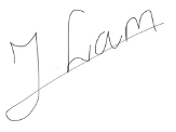 J Lam